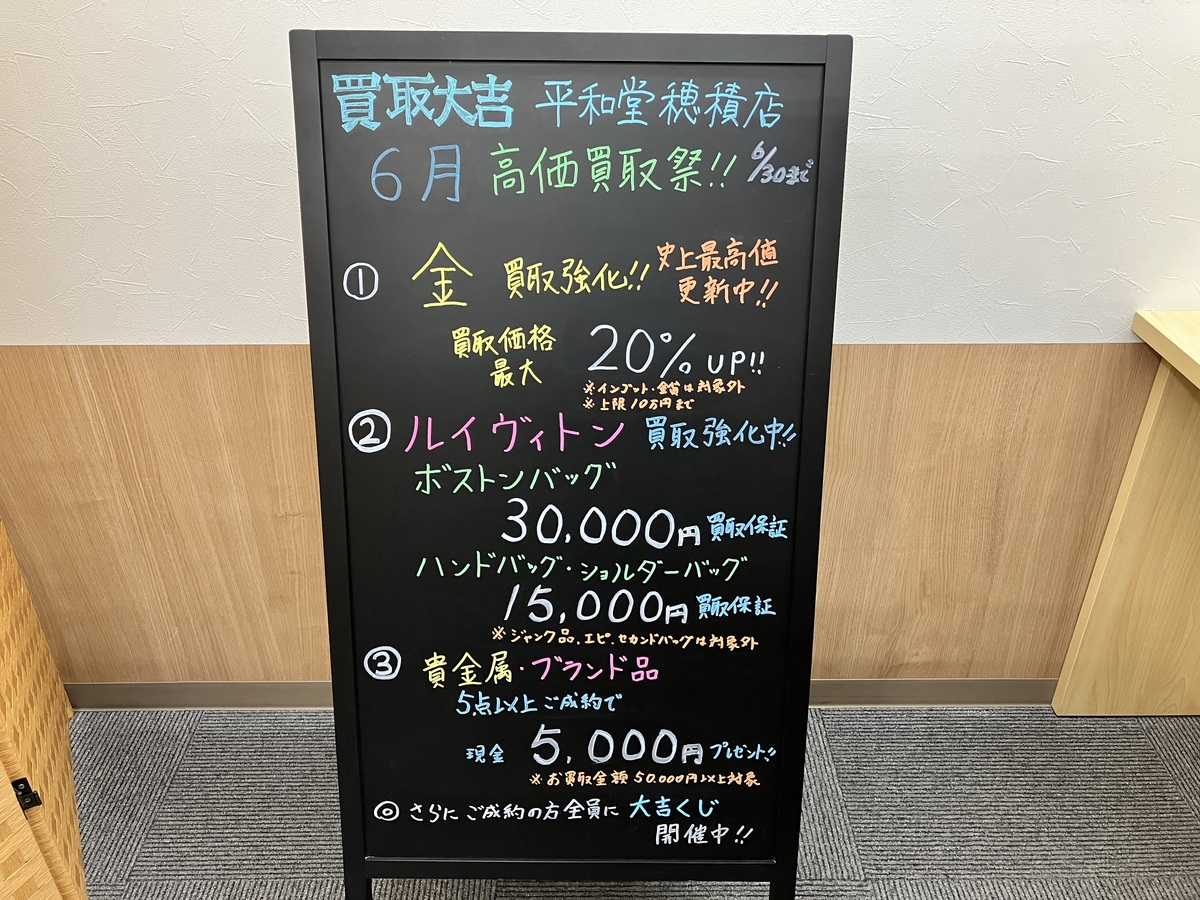 買取大吉 平和堂穂積店
6月 高価買取祭!! 6/30まで
① 金 買取強化!! 史上最高値
更新中!!
買取価格
最大 20% UP!!
※インゴット・金貨は対象外
※上限10万円まで
② ルイヴィトン 買取強化中!!
ボストンバッグ
30,000円 買取保証
ハンドバッグ・ショルダーバッグ
15,000円 買取保証
※ジャンク品、エピ、セカンドバッグは対象外
③ 貴金属・ブランド品
5点以上ご成約で
現金 5,000円 プレゼント!!
※お買取金額50,000円以上対象
◎ さらにご成約の方全員に 大吉くじ
開催中!!